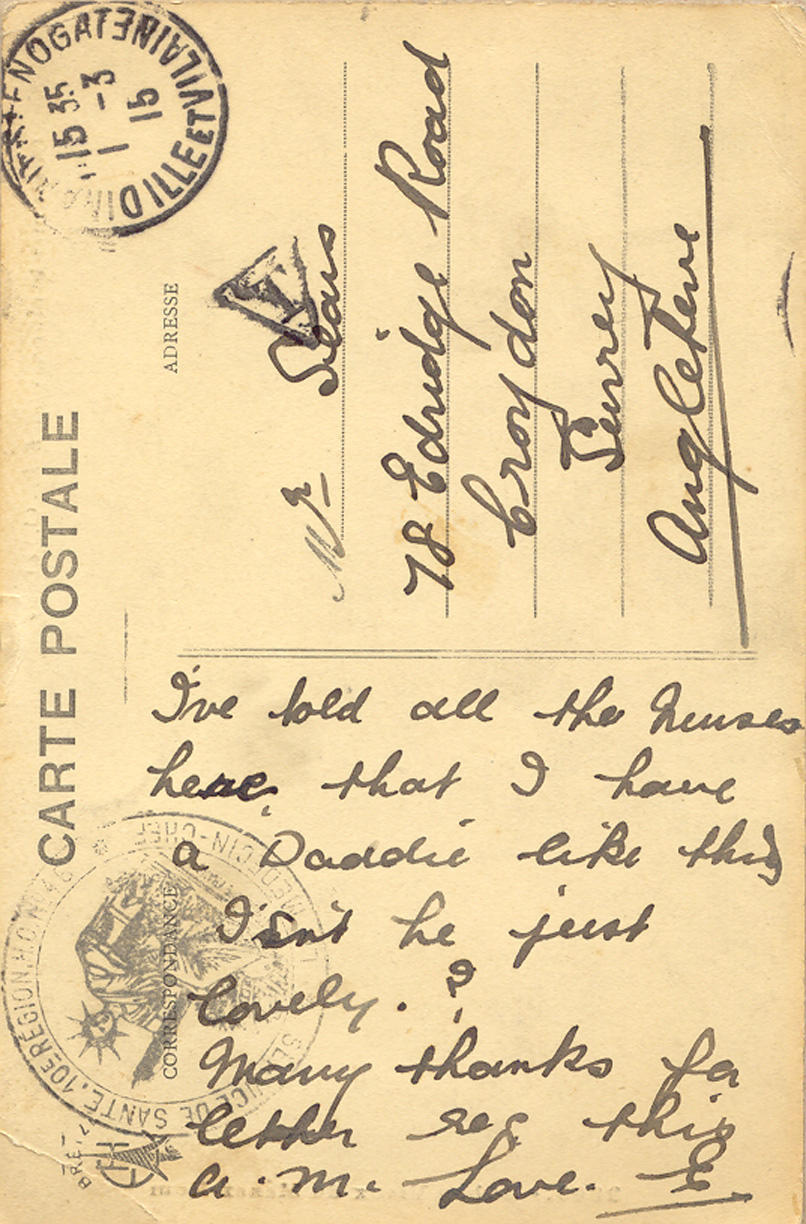 CARTE POSTALE
ADRESSE
CORRESPONDANCE
15 35
1 -3
15
ILLE ET VILAINE
T
Mr Sears
78 Edridge Road
Croydon
Surrey
Angleterre
I've told all the Nurses
here that I have
a Daddie like this
Isn't he just
lovely. ?
Many thanks for
letter rec this
a.m. Love. E.
MEDECIN-CHEF
SERVICE DE SANTE, 10E RÉGION